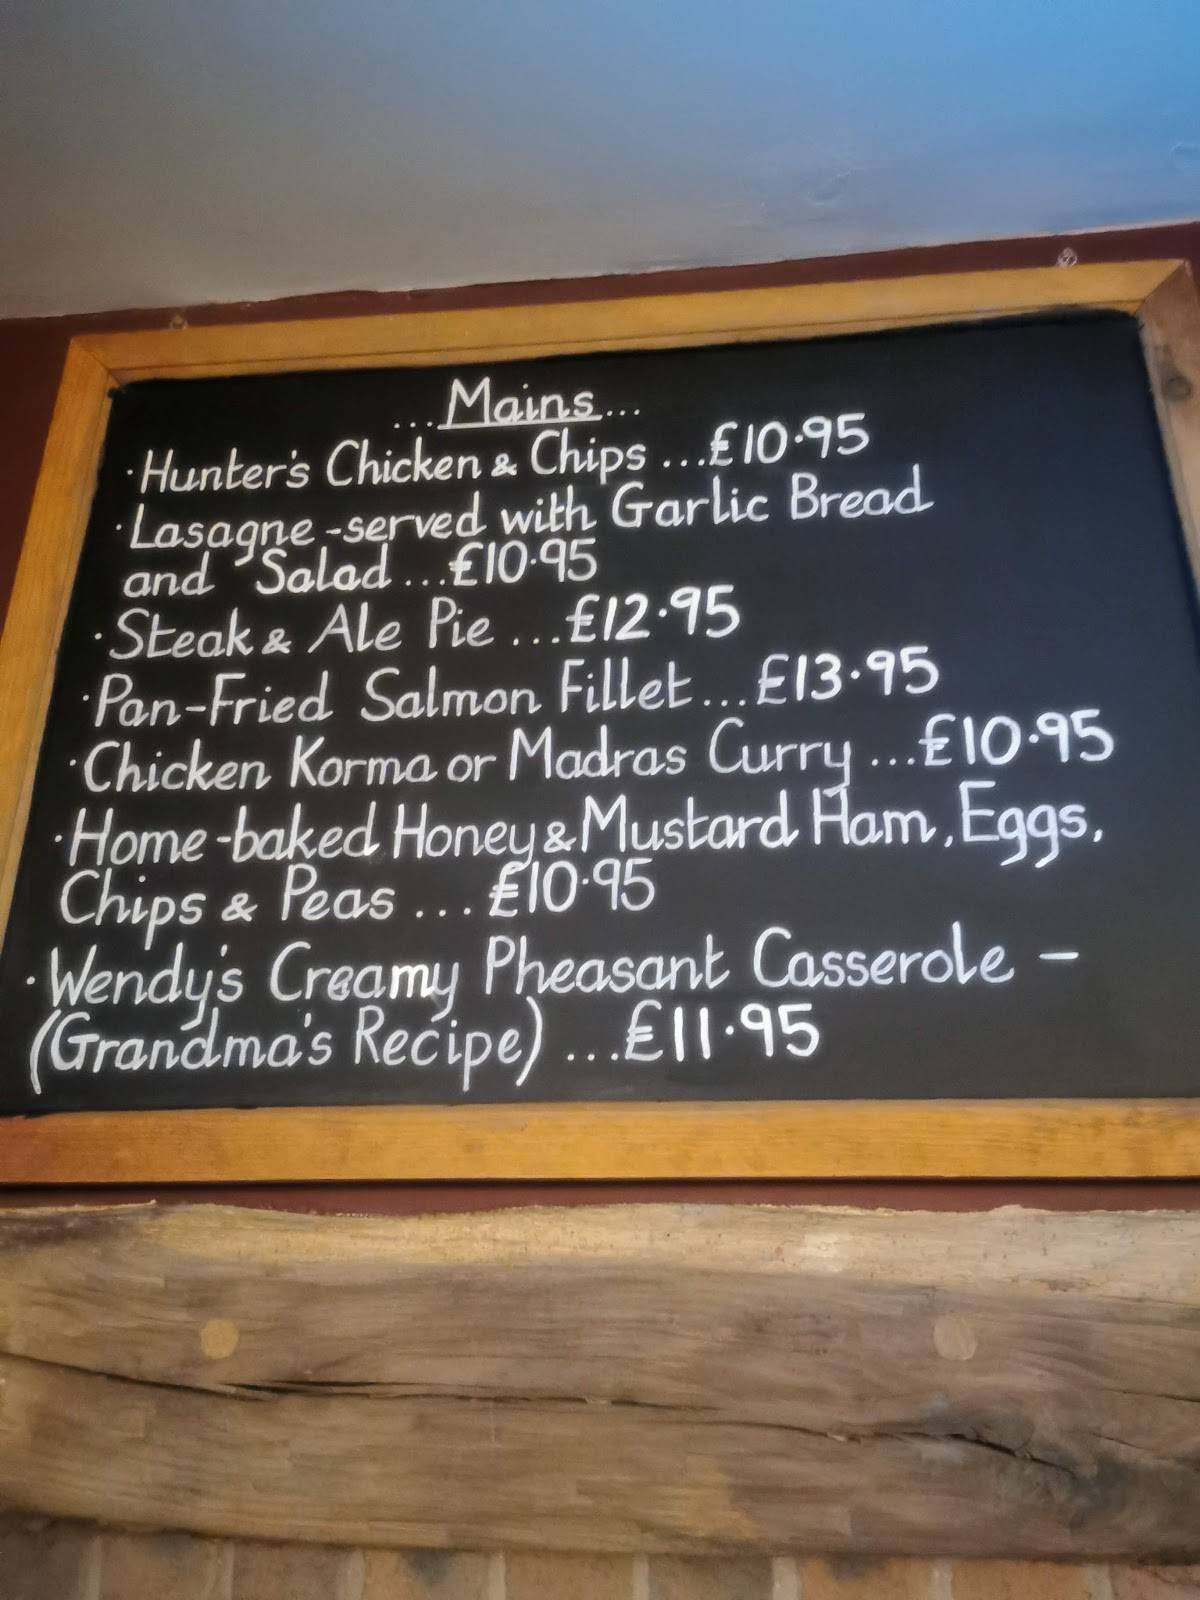 ...Mains...
·Hunter's Chicken & Chips ...£10·95
·Lasagne-served with Garlic Bread
and Salad...£10·95
·Steak & Ale Pie ...£12·95
·Pan-Fried Salmon Fillet...£13·95
·Chicken Korma or Madras Curry ...£10·95
·Home-baked Honey & Mustard Ham, Eggs,
Chips & Peas ... £10·95
·Wendy's Creamy Pheasant Casserole -
(Grandma's Recipe) ...£11·95